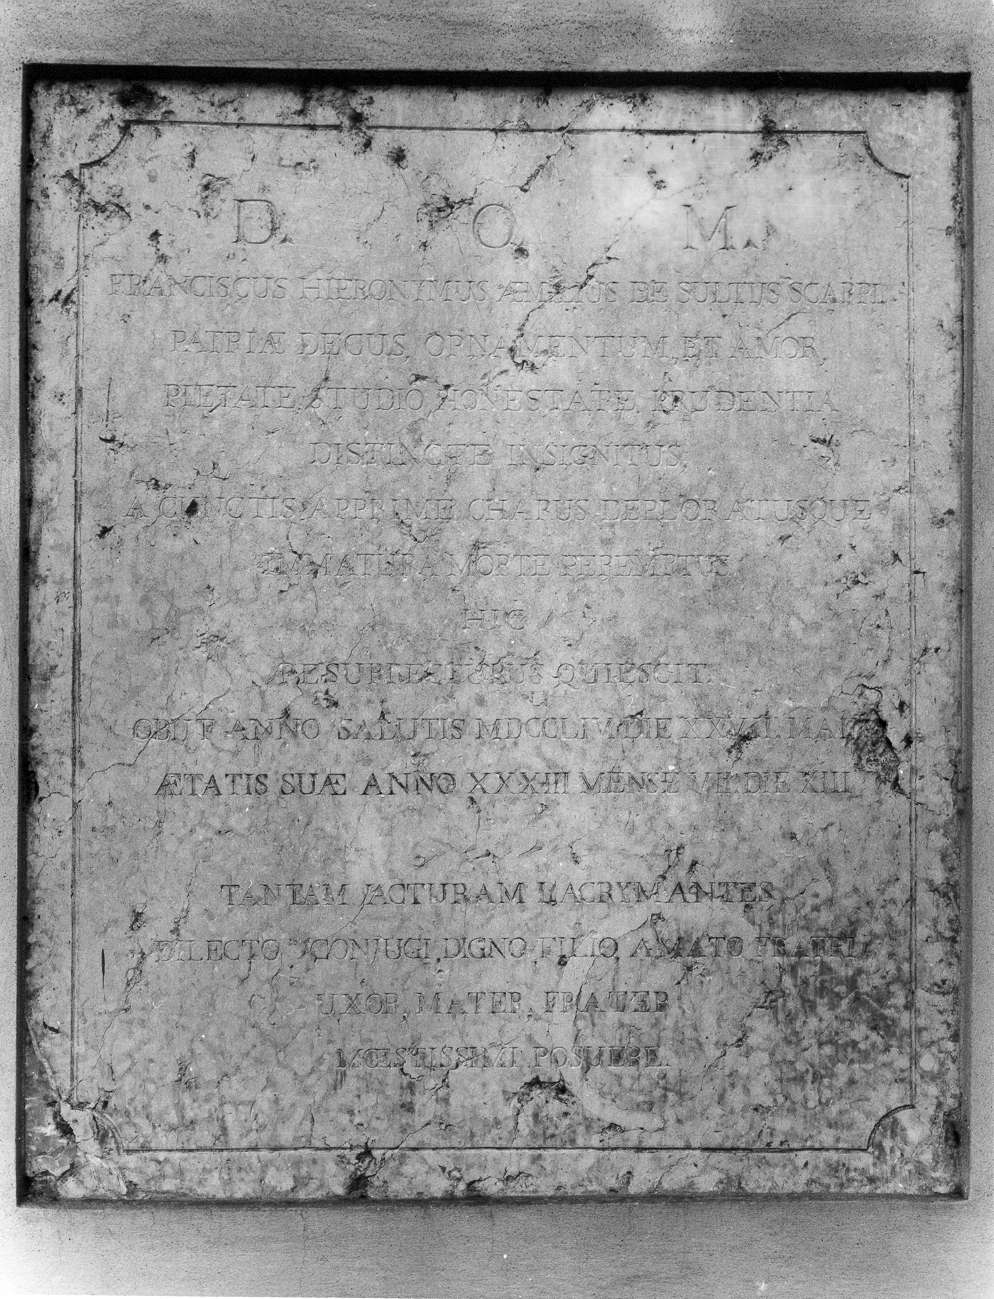 D. O. M.
FRANCISCUS HIERONYMUS ÆMILIUS DE SULTIIS SCAPPI
PATRIÆ DECUS, ORNAMENTUM, ET AMOR
PIETATE, STUDIO, HONESTATE, PRUDENTIA
DISTINCTE INSIGNITUS,
A CUNCTIS APPRIME CHARUS DEPLORATUSQUE
IMMATURA MORTE PEREMPTUS
HIC
RESURRECTURUS QUIESCIT.
OBIIT ANNO SALUTIS MDCCLIV. DIE XXVII. MAII
ÆTATIS SUÆ ANNO XXXIII MENSE VII. DIE XIIII
TANTAM JACTURAM LACRYMANTES
DILECTO CONJUGI, DIGNO FILIO, AMATO FRATRI
UXOR, MATER, FRATER
MŒSTISSIMI POSUERE.